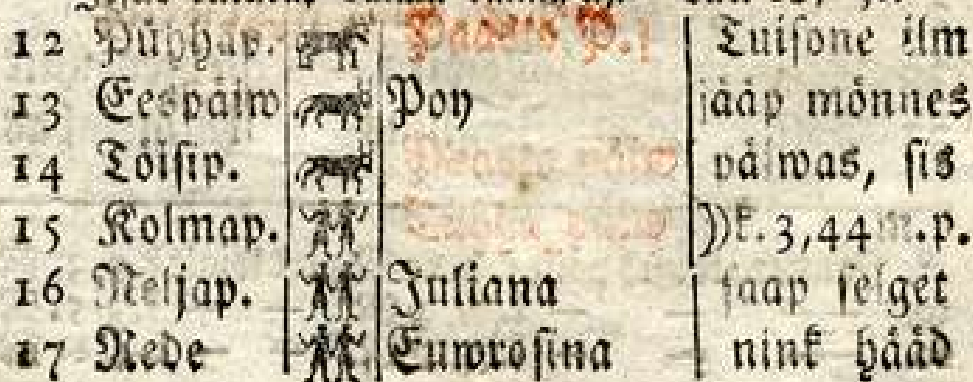 12 Pühhäp. Paastu P. Tuisone ilm
13 Eespäiw Poy jääp mönnes
14 Töisip. päiwas, sis
15 Kolmap. ))k. 3,44 m.p.
16 Neljap. Juliana saap selget
17 Rede Euwrosina nink hääd